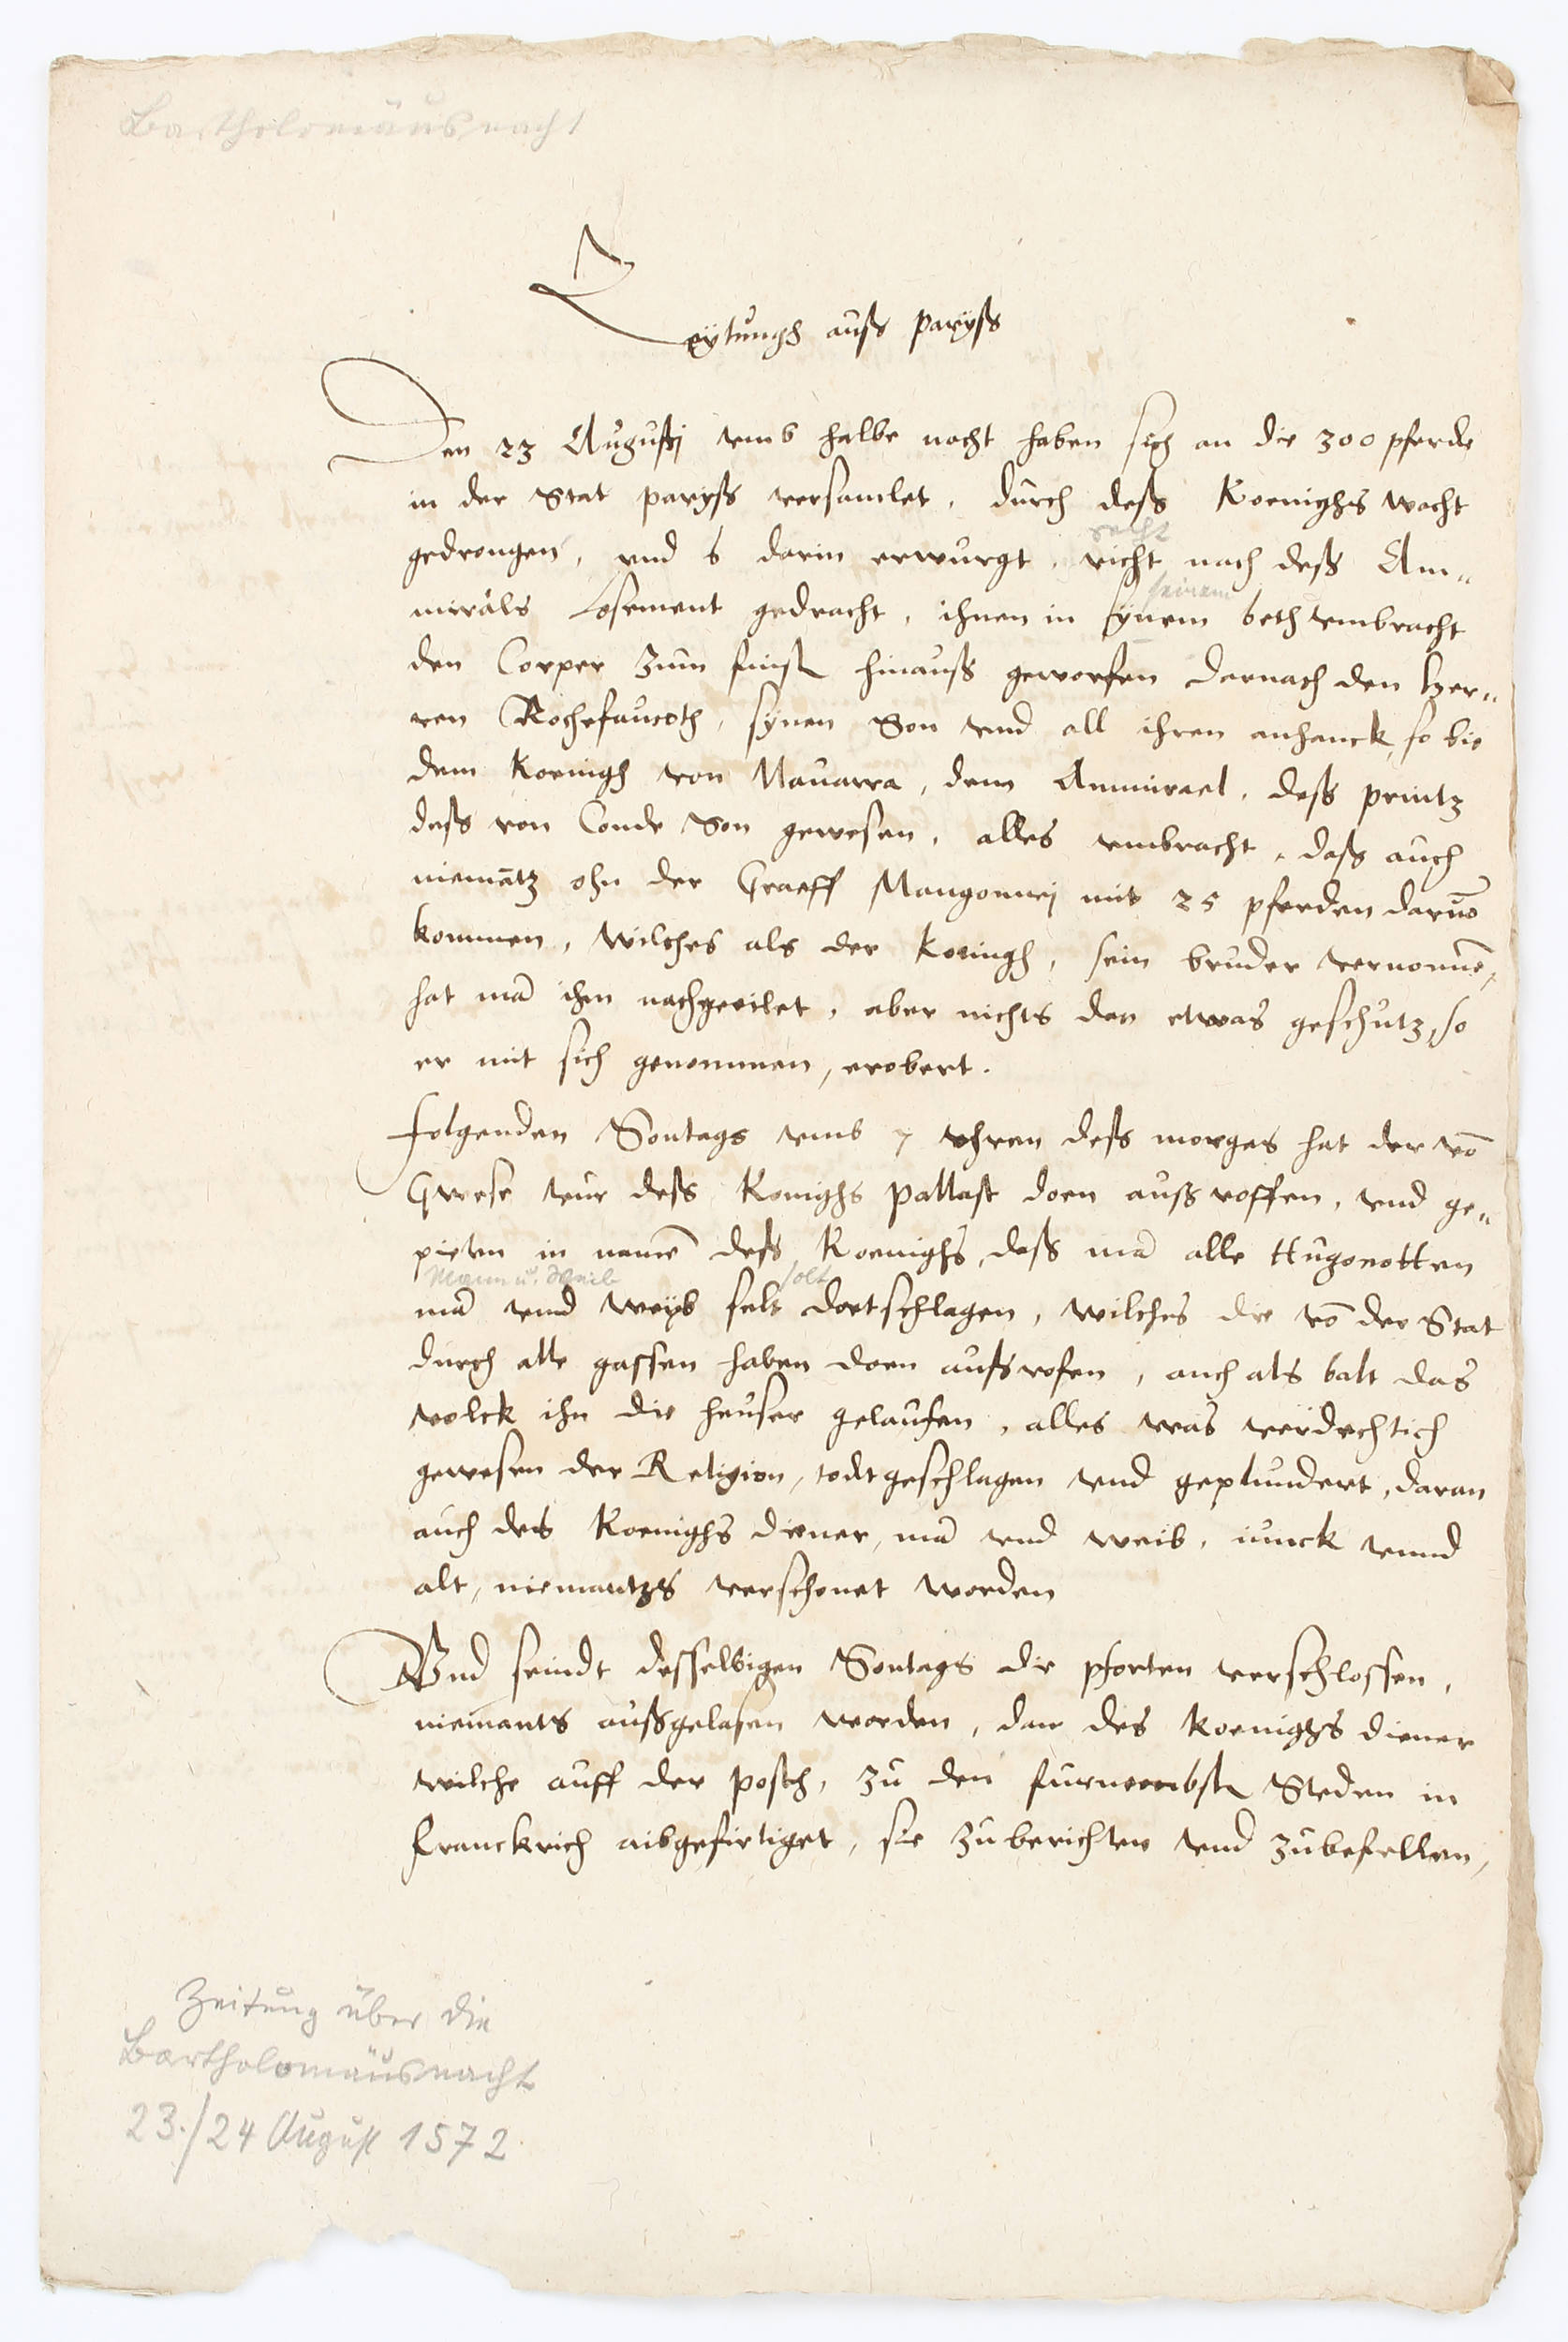 Bartholomäusnacht
Zeytungh auß Paryß
Den 23 Augustj vmb halbe nacht haben sich an die 300 pferde
in der Stat paryß versamlet, durch deß Koenighs wacht
gedrongen, vnd 6 darin erwurgt, richt nach deß Am„
recht
mirals Losement gedracht, ihnen in synem beth vmbracht
seinem
den Corper zum finst hinauß geworfen darnach den her„
ren Rochefaucoth, synen Son vnd all ihren anhanck, so bie
dem Koenigh von Nauarra, dem Ammirael, deß printz
deß von Conde Son gewesen, alles vmbracht, daß auch
niemātz ohn der Graeff Mangomrij mit 25 pferden daruō
kommen, wilches als der Koningh, sein bruder vernommē,
hat mā ihm nachgeeilet, aber nichts den etwas geschutz, so
er mit sich genommen, erobert.
Folgenden Sontags vmb 7 vhren deß morgēs hat der vō
Gwese vur deß Konighs Pallast doen auß roffen, vnd ge„
pieten in namē deß Koenighs, daß mā alle Hugonotten
Mann u. Weib solt
mā vnd weyb solt doetschlagen, wilches die vō der Stat
durch alle gassen haben doen außrofen, auch als balt das
volck ihn die heuser gelaufen, alles was verdechtich
gewesen der Religion, todtgeschlagen vnd geplundert, daran
auch des Koenighs diener, mā vnd weib, iunck vnnd
alt, niemantzs verschonet worden
Vnd seindt desselbigen Sontags die pforten verschlossen,
niemants außgelasen worden, dan des Koenighs diener
wilche auff der posth, zu den furnembsten Steden in
Franckrich aibgefirtiget, sie zu berichten vnd zu befellen,
Zeitung über die
Bartholomäusnacht
23./24 August 1572